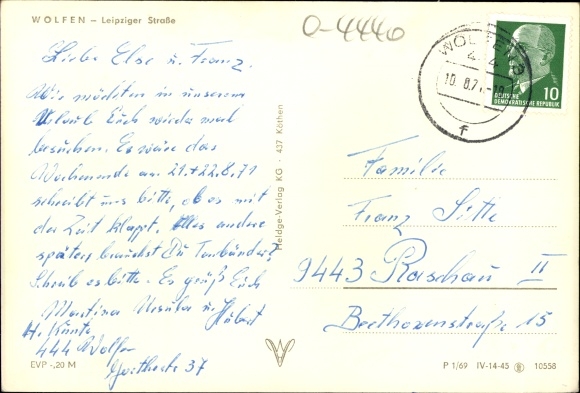 WOLFEN – Leipziger Straße
O-4440
Liebe Else u. Franz.
Wir möchten in unserem
Urlaub Euch wieder mal
besuchen. Es wäre das
Wochenende am 21+22.8.71
schreibt uns bitte, ob es mit
der Zeit klappt. Alles andere
später brauchst Du
Schreib es bitte. Es grüß Euch
Martina Ursula u. Hubert
H. Kuntz
444 Wolfen
Goethestr 37
EVP -,20 M
Heldge-Verlag KG · 437 Köthen
WOLFEN 3
444
10.8.71
f
10
DEUTSCHE
DEMOKRATISCHE REPUBLIK
Familie
Franz Sitte
9443 Raschau II
Beethovenstraße 15
P 1/69 IV-14-45 10558